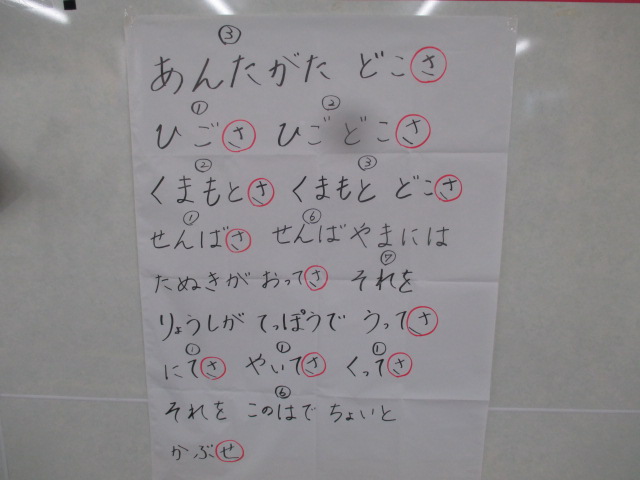 ③
あんたがた どこさ
① ②
ひごさ ひごどこさ
② ③
くまもとさ くまもと どこさ
① ⑥
せんばさ せんばやまには
⑦
たぬきが おってさ それを
りょうしが てっぽうで うってさ
① ① ①
にてさ やいてさ くってさ
⑥
それを このはで ちょいと
かぶせ